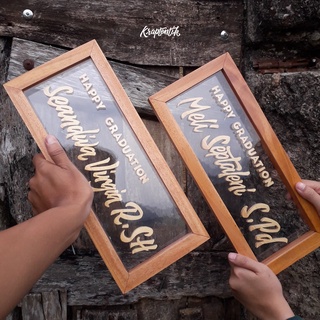 Kraptentik
HAPPY GRADUATION
Seandiva Virgia R.SH
HAPPY GRADUATION
Meli Septaleni S.Pd